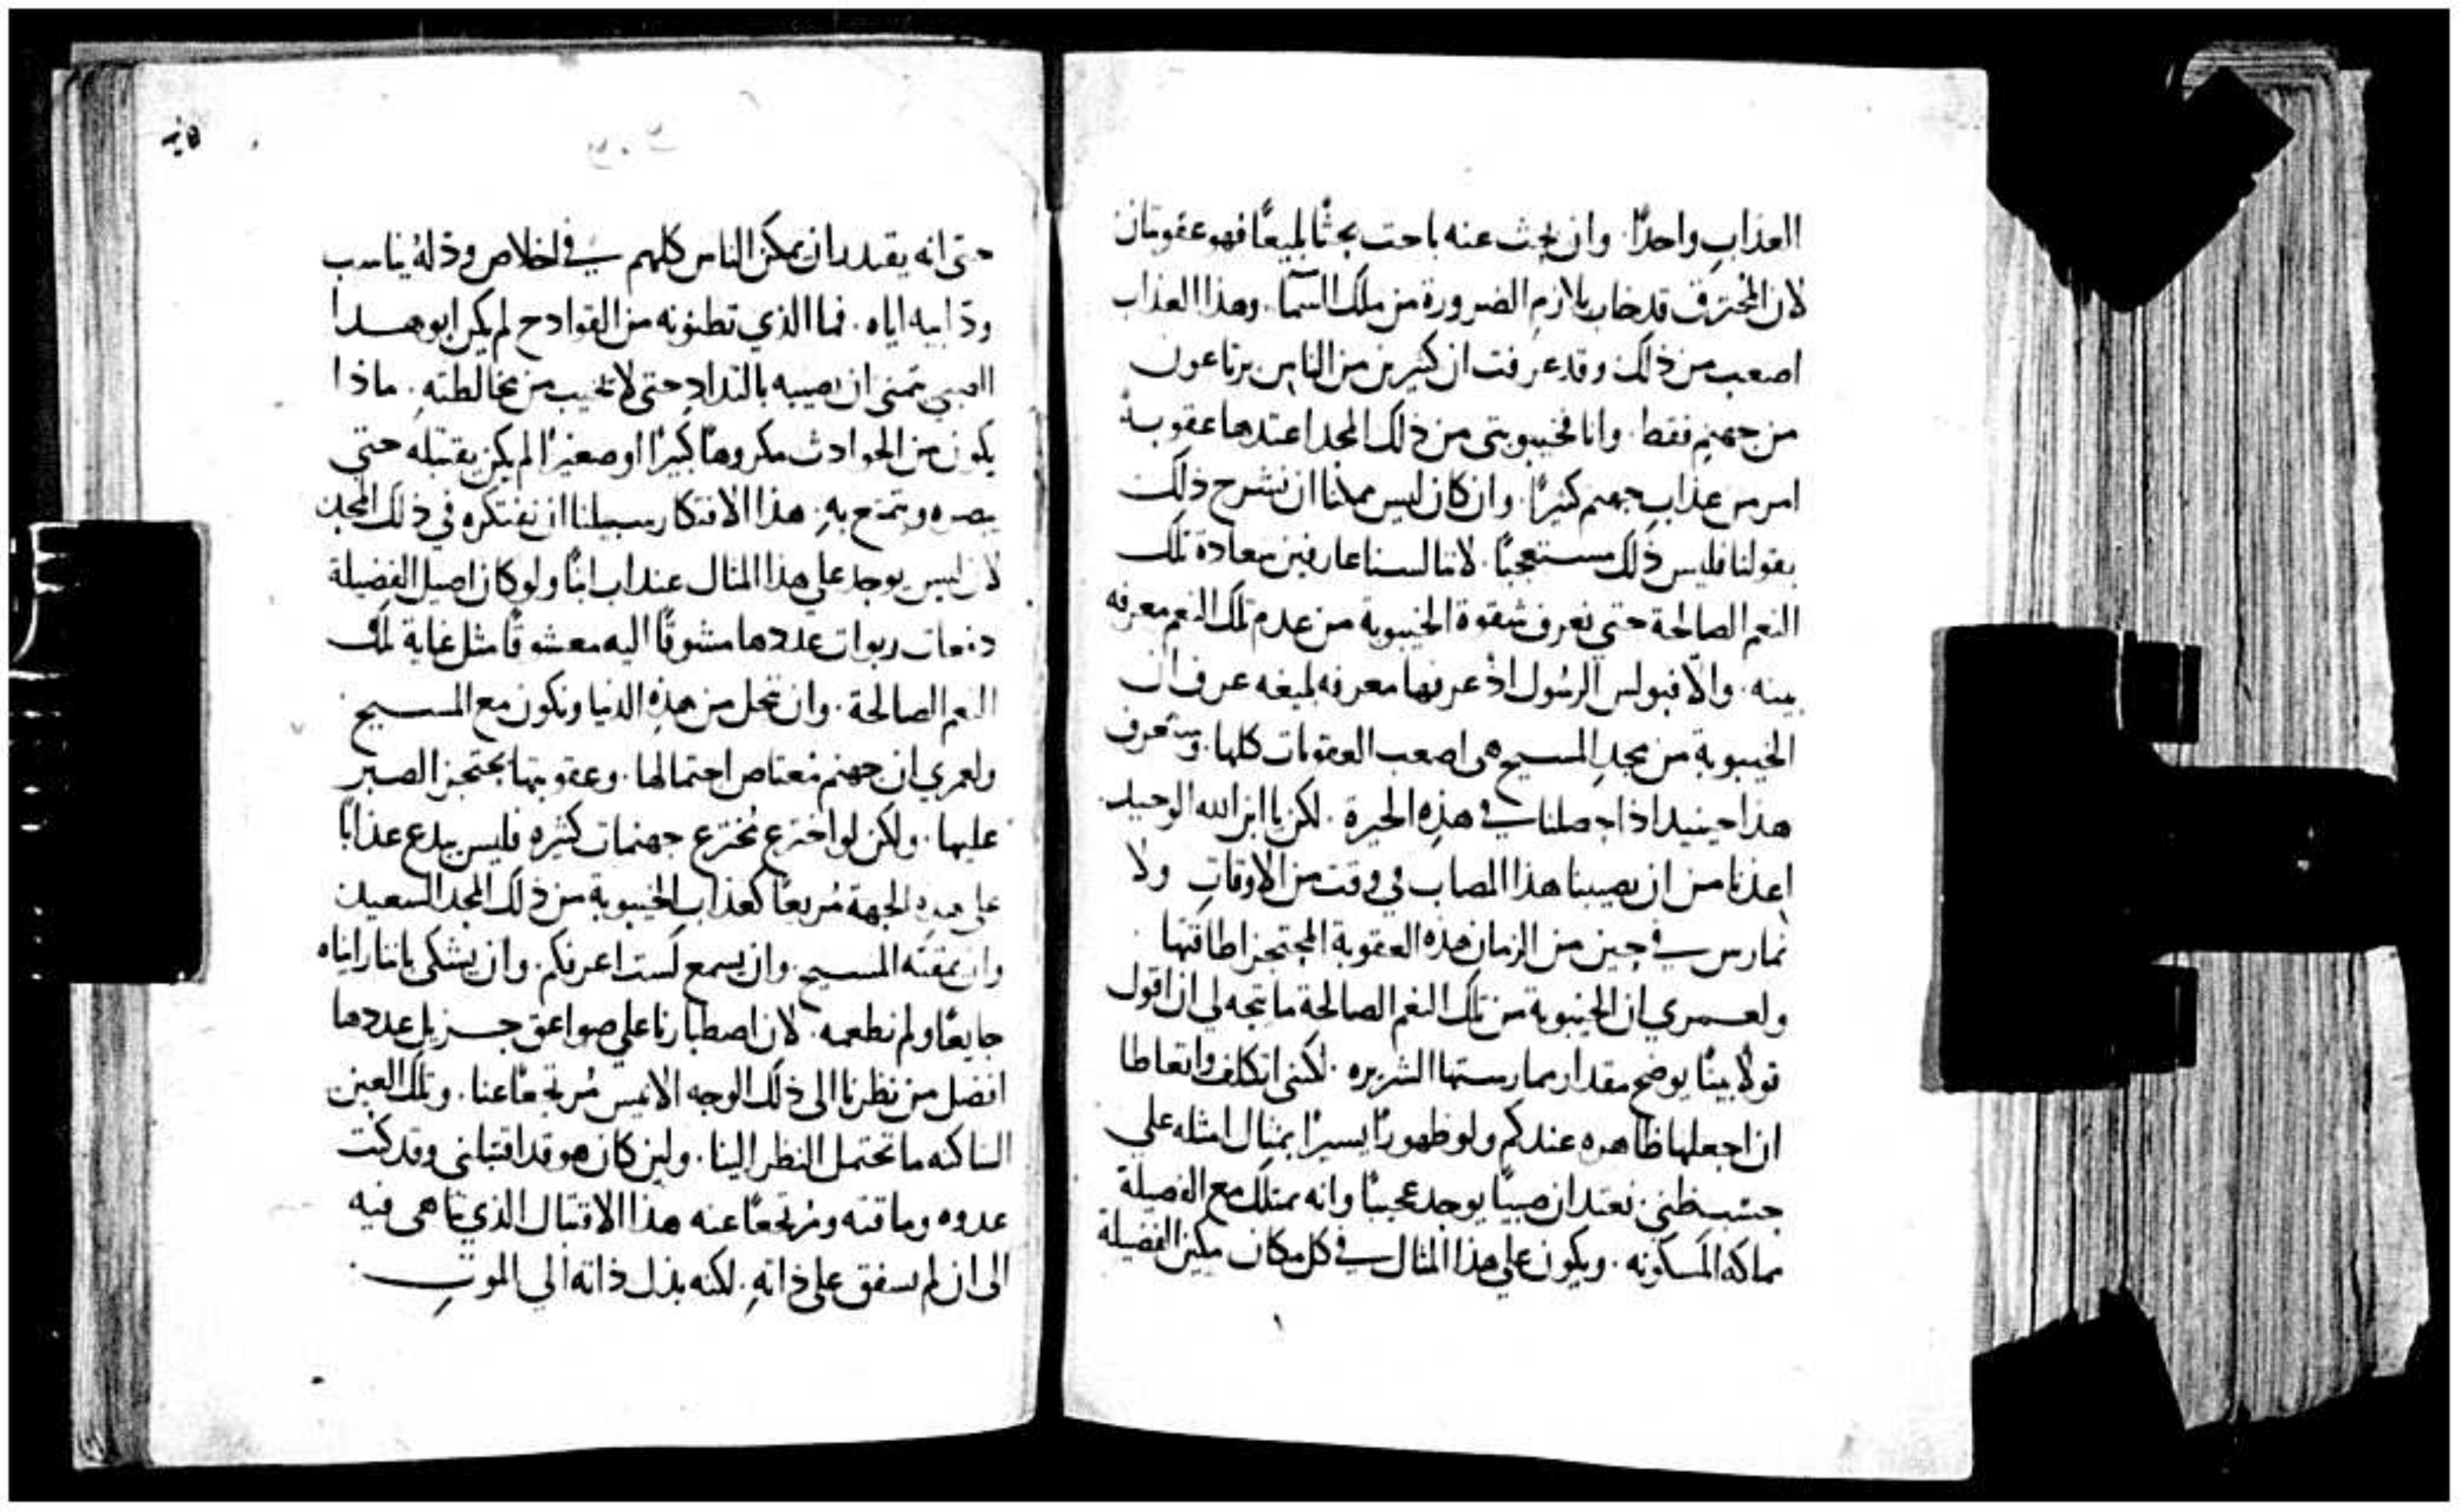 العذاب واحدًا. وان بحث عنه باحث بحثًا بليغًا فهو عقوبتان
لان المحترق قد خاب بلازم الضرورة من ملك السما. وهذا العذاب
اصعب من ذلك وقد عرفت ان كثيرين من الناس يرتاعون
من جهنم فقط. وانا فخيبوبتي من ذلك المجد اعتدها عقوبة
امر من عذاب جهنم كثيرًا. وان كان ليس ممكنا ان نشرح ذلك
بقولنا فليس ذلك مستعجبًا. لاننا لسنا عارفين سعادة تلك
النعم الصالحة حتي نعرف شقوة الخيبوبة من عدم تلك النعم معرفه
بينه. والا فبولس الرسول اذ عرفها معرفه بليغه عرف ان
الخيبوبة من مجد المسيح هى اصعب العقوبات كلها. وسنعرف
هذا حينيد اذا حصلنا في هذه الخبرة. لكن يا ابن الله الوحيد
اعذنا من ان يصيبنا هذا المصاب في وقت من الاوقات ولا
نمارس في حين من الزمان هذه العقوبة المحتجز اطاقتها
ولعمري ان الخيبوبة من تلك النعم الصالحة ما يتجه لي ان اقول
قولًا بينًا يوضح مقدار ممارستها الشريره. لكنني اتكلف واتعاطا
ان اجعلها ظاهره عندكم ولو ظهورًا يسيرًا بمثال امثله علي
حسب ظني. نعتد ان صبيًا يوجد عجيبًا وانه يمتلك مع الفضيلة
مملكه المسكونه. ويكون علي هذا المثال في كل مكان مكين الفضيلة
حتى انه يقتدر ان يمكن الناس كلهم في
اياه. فما الذي تظنونه من القوادح لم يكن ابو هذا
الصبي يتمنى ان يصيبه بالتداد حتى لا يخيب من مخالطته. ماذا
يكون من الحوادث مكروهًا كبيرًا او صغيرًا لم يكن يقتبله حتي
يبصره ويتمتع به. هذا الافتكار سبيلنا ان نفتكره في ذلك المجد
لان ليس يوجد علي هذا المثال عند اب ابنًا ولو كان اصيل الفضيلة
دفعات ربوات عددها مشوقًا اليه معشوقًا مثل غاية تلك
النعم الصالحة. وان نحل من هذه الدنيا ونكون مع المسيح
ولعمري ان جهنم معتاص احتمالها. وعقوبتها محتجز الصبر
عليها. ولكن لو اخترع مخترع جهنمات كثيره فليس يبدع عذابًا
علي هذه الجهة مريعًا كعذاب الخيبوبة من ذلك المجد السعيد
وان يمقته المسيح. وان يسمع لست اعرفكم. وان يشتكى باننا رايناه
جايعًا ولم نطعمه. لان اصطبارنا علي صواعق جزيل عددها
افضل من نظرنا الى ذلك الوجه الانيس مرتجعًا عنا. وتلك العين
الساكنه ما تحتمل النظر الينا. ولين كان هو قد اقتبلني وقد كنت
عدوه وماقته ومرتجعًا عنه هذا الاقتبال الذي تناهى فيه
الى ان لم يشفق على ذاته. لكنه بذل ذاته الي الموت